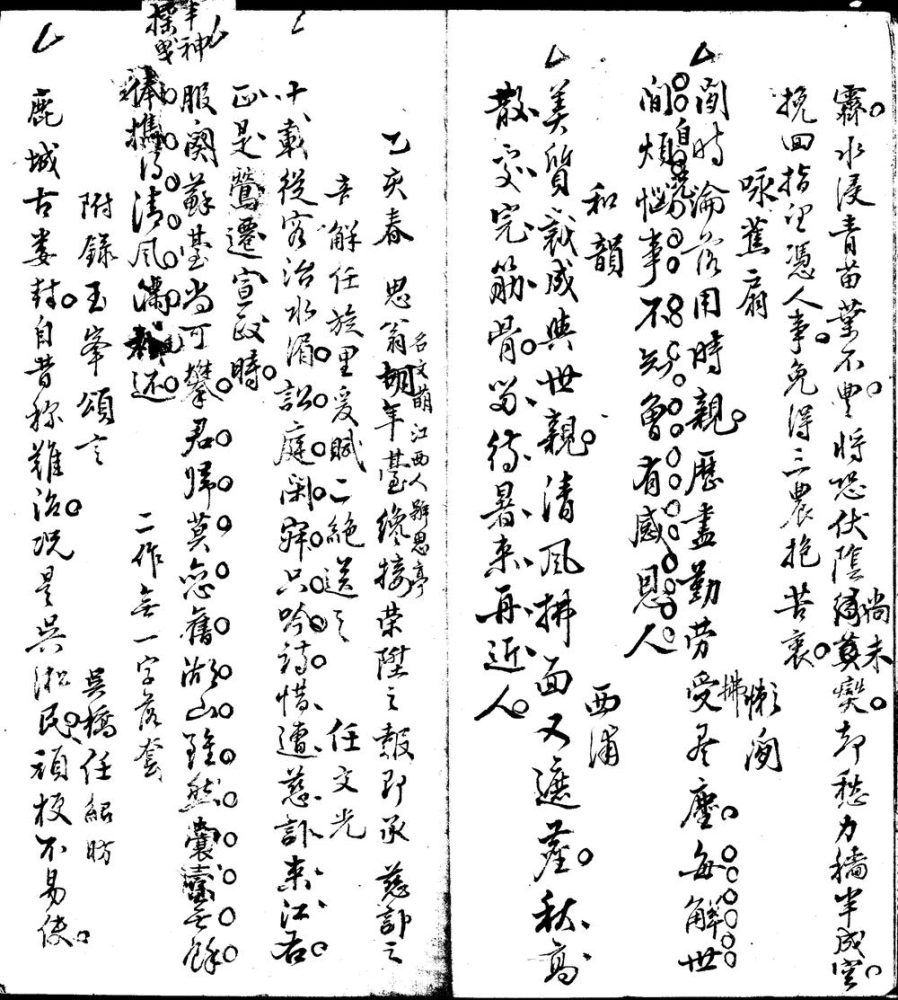 霖水浸青苗葉不豐將恐伏陰尚未變却愁力穡半成空
挽回指望憑人事免得三農抱苦衷
咏蕉扇 懶閒
閒時淪落用時親歷盡勤勞受拂塵每解世
間煩惱事不知曾有感恩人
和韻 西浦
美質裁成與世親清風拂面又遮塵秋高
散盡完筋骨留待暑来再近人
乙亥春 思翁胡年臺名文萌江西人號思亭纔接荣陞之報即承慈訃之
音解任旋里爰賦二絶送之 任文光
十載從容治水湄訟庭閑寂只吟詩惜遭慈訃来江右
正是鶯遷宣政時
服闋蘇臺尚可攀君歸莫恋舊湖山雖然囊橐無餘
俸攜得清風滿載还
二作無一字落套
附錄玉峯頌言 吳橋任紹昉
鹿城古婁封自昔称難治况是吳淞民頑梗不易使